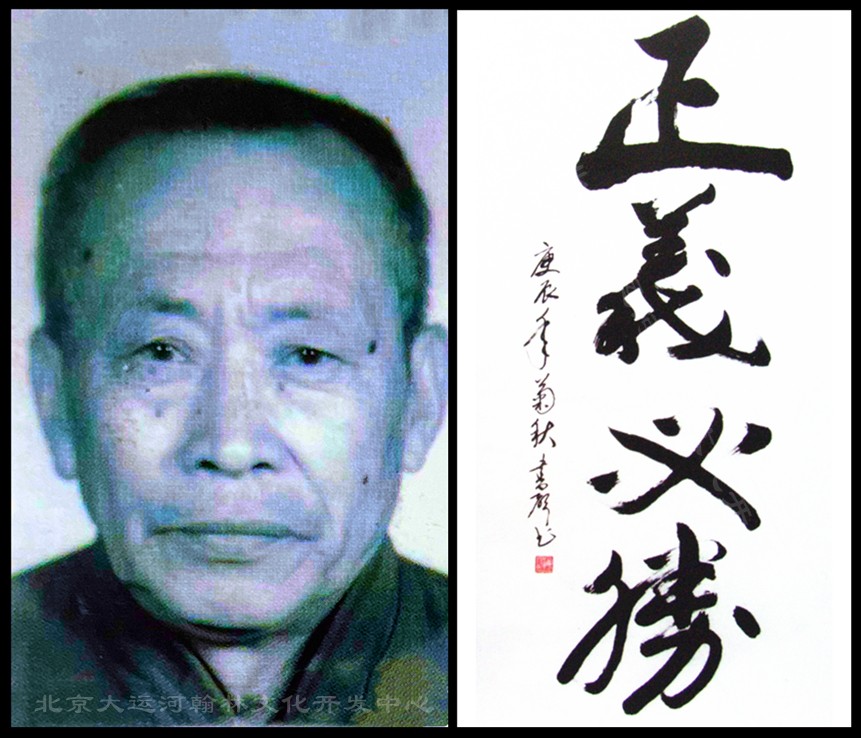 正義必勝
庚辰年菊秋書聲書
北京大运河翰林文化开发中心